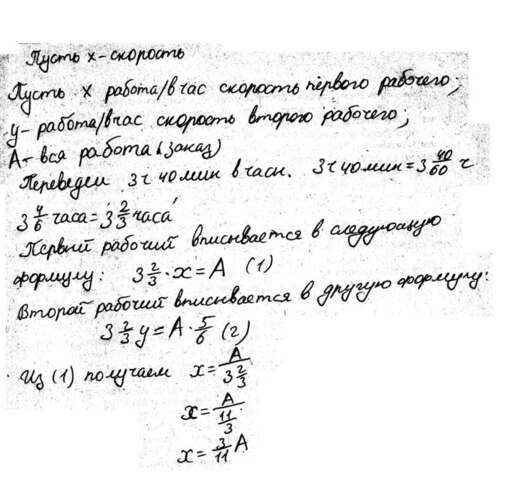 Пусть x - скорость
Пусть x работа/в час скорость первого рабочего;
y - работа/в час скорость второго рабочего;
A - вся работа (заказ)
Переведем 3ч 40мин в часы. 3ч 40мин = 3 40/60 ч
3 4/6 часа = 3 2/3 часа
Первый рабочий вписывается в следующую
формулу: 3 2/3 · x = A (1)
Второй рабочий вписывается в другую формулу:
3 2/3 y = A · 5/6 (2)
Из (1) получаем x = A/(3 2/3)
x = A/(11/3)
x = 3/11 A